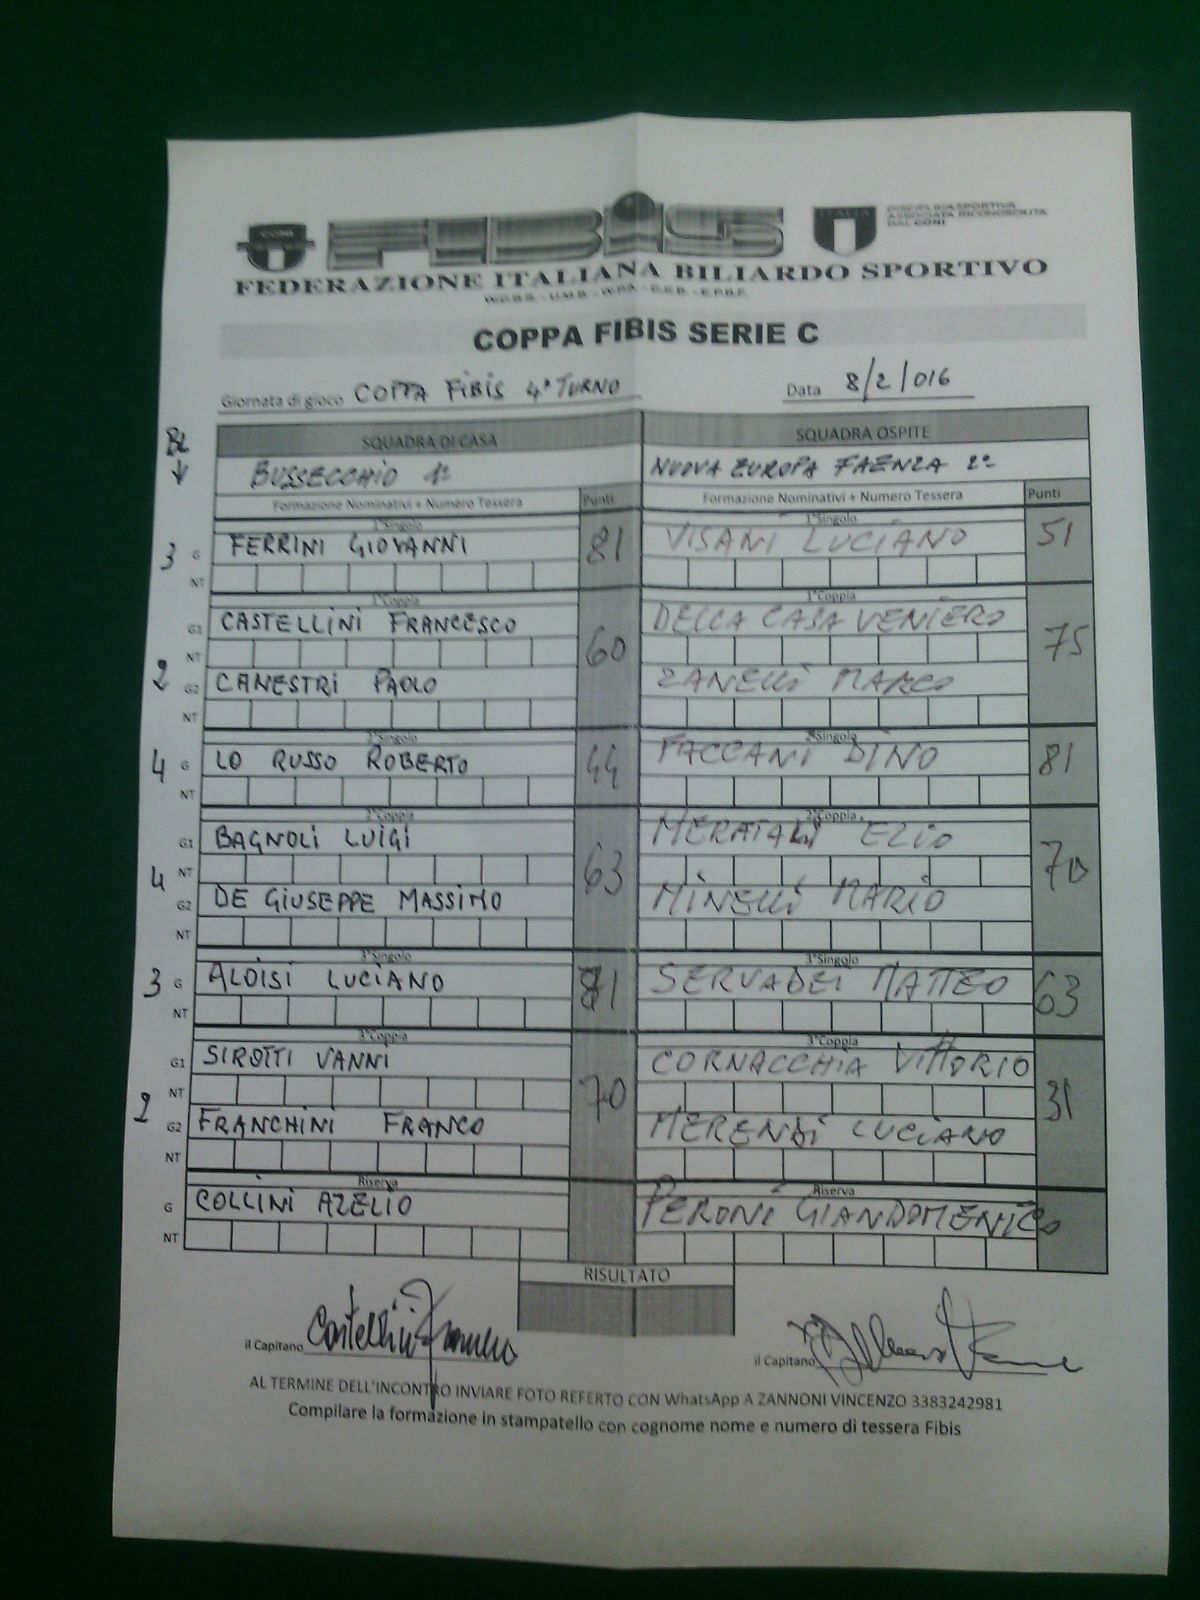 CONI
FIBiS
ITALIA
DISCIPLINA SPORTIVA
ASSOCIATA RICONOSCIUTA
DAL CONI
FEDERAZIONE ITALIANA BILIARDO SPORTIVO
W.C.B.S. - U.M.B. - W.P.A. - C.E.B. - E.P.B.F.
COPPA FIBIS SERIE C
Giornata di gioco COPPA FIBIS 4° TURNO Data 8/2/016
BL
SQUADRA DI CASA SQUADRA OSPITE
BUSSECCHIO 1° NUOVA EUROPA FAENZA 2°
Formazione Nominativi + Numero Tessera Punti Formazione Nominativi + Numero Tessera Punti
1°Singolo 1°Singolo
3 G FERRINI GIOVANNI 81 VISANI LUCIANO 51
NT
1°Coppia 1°Coppia
G1 CASTELLINI FRANCESCO 60 DELLA CASA VENIERO 75
NT
2 G2 CANESTRI PAOLO ZANELLI MARCO
NT
2°Singolo 2°Singolo
4 G LO RUSSO ROBERTO 44 FACCANI DINO 81
NT
2°Coppia 2°Coppia
G1 BAGNOLI LUIGI 63 ELIO 70
4 NT
G2 DE GIUSEPPE MASSIMO MINELLI MARIO
NT
3°Singolo 3°Singolo
3 G ALOISI LUCIANO 81 SERVADEI MATTEO 63
NT
3°Coppia 3°Coppia
G1 SIROTTI VANNI 70 CORNACCHIA VITTORIO 31
NT
2 G2 FRANCHINI FRANCO MERENDI LUCIANO
NT
Riserva Riserva
G COLLINI AZELIO PERONI GIANDOMENICO
NT
RISULTATO
il Capitano Castellini Francesco il Capitano
AL TERMINE DELL'INCONTRO INVIARE FOTO REFERTO CON WhatsApp A ZANNONI VINCENZO 3383242981
Compilare la formazione in stampatello con cognome nome e numero di tessera Fibis